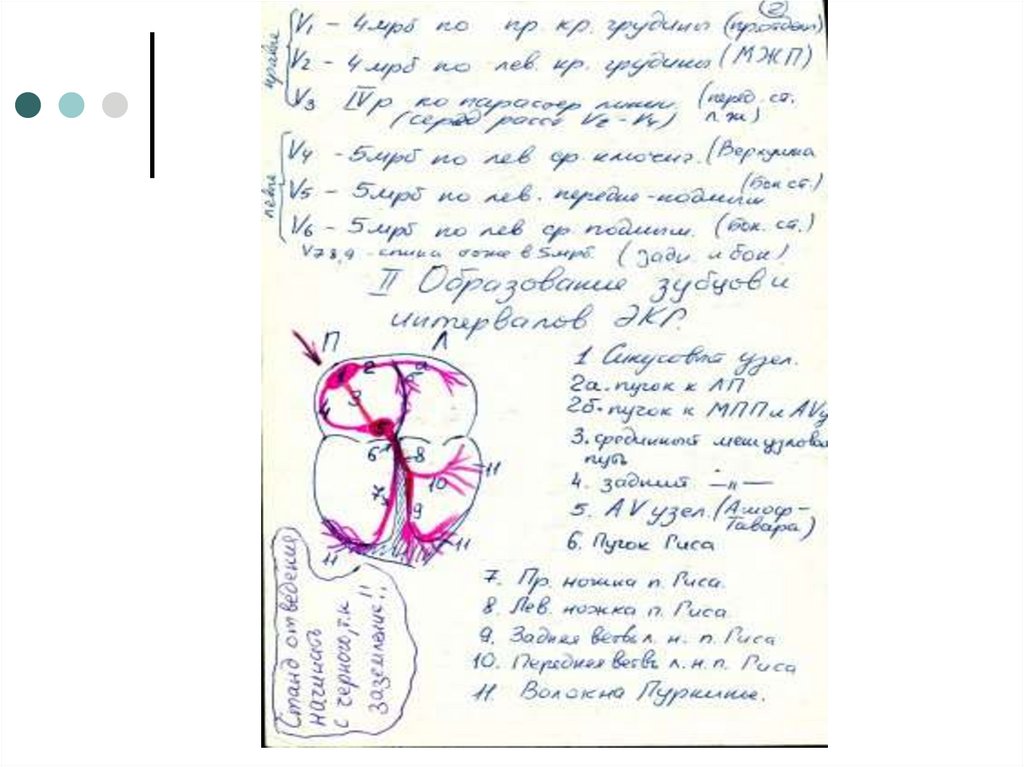 2
правые
V1 - 4мрб по пр. кр. грудины
V2 - 4мрб по лев. кр. грудины (МЖП)
V3 IVр по парастер линии (перед. ст.
(серед расст V2-V4) л.ж)
левые
V4 - 5мрб по лев ср. ключич. (Верхушка
V5 - 5мрб по лев. передне-подмыш (Бок ст.)
V6 - 5мрб по лев ср. подмыш. (Бок. ст.)
V7 8,9 - спина тоже в 5мрб. (задн и бок)
II Образование зубцов и
интервалов ЭКГ.
П Л
1 2 а б 3 4 5
6 8 11
7 10 9
11 11
1 Синусовый узел.
2а. пучок к ЛП
2б. пучок к МПП и AV у
3. срединный межузловой
путь
4. задний -"-
5. AV узел. (Ашоф-
Тавара)
6. Пучок Гиса
7. Пр. ножка п. Гиса.
8. Лев. ножка п. Гиса.
9. Задняя ветвь л. н. п. Гиса
10. Передняя ветвь л.н.п. Гиса
11. Волокна Пуркинье.
Станд отведения
начинать
с черного, т.к
заземление!!